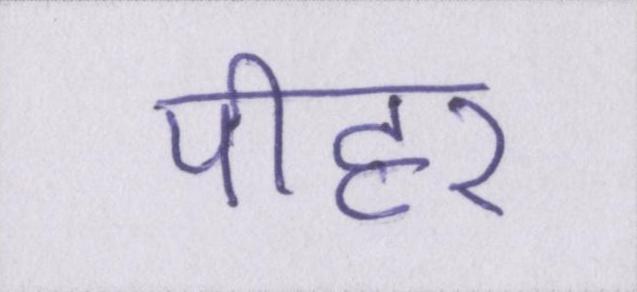 पीहर